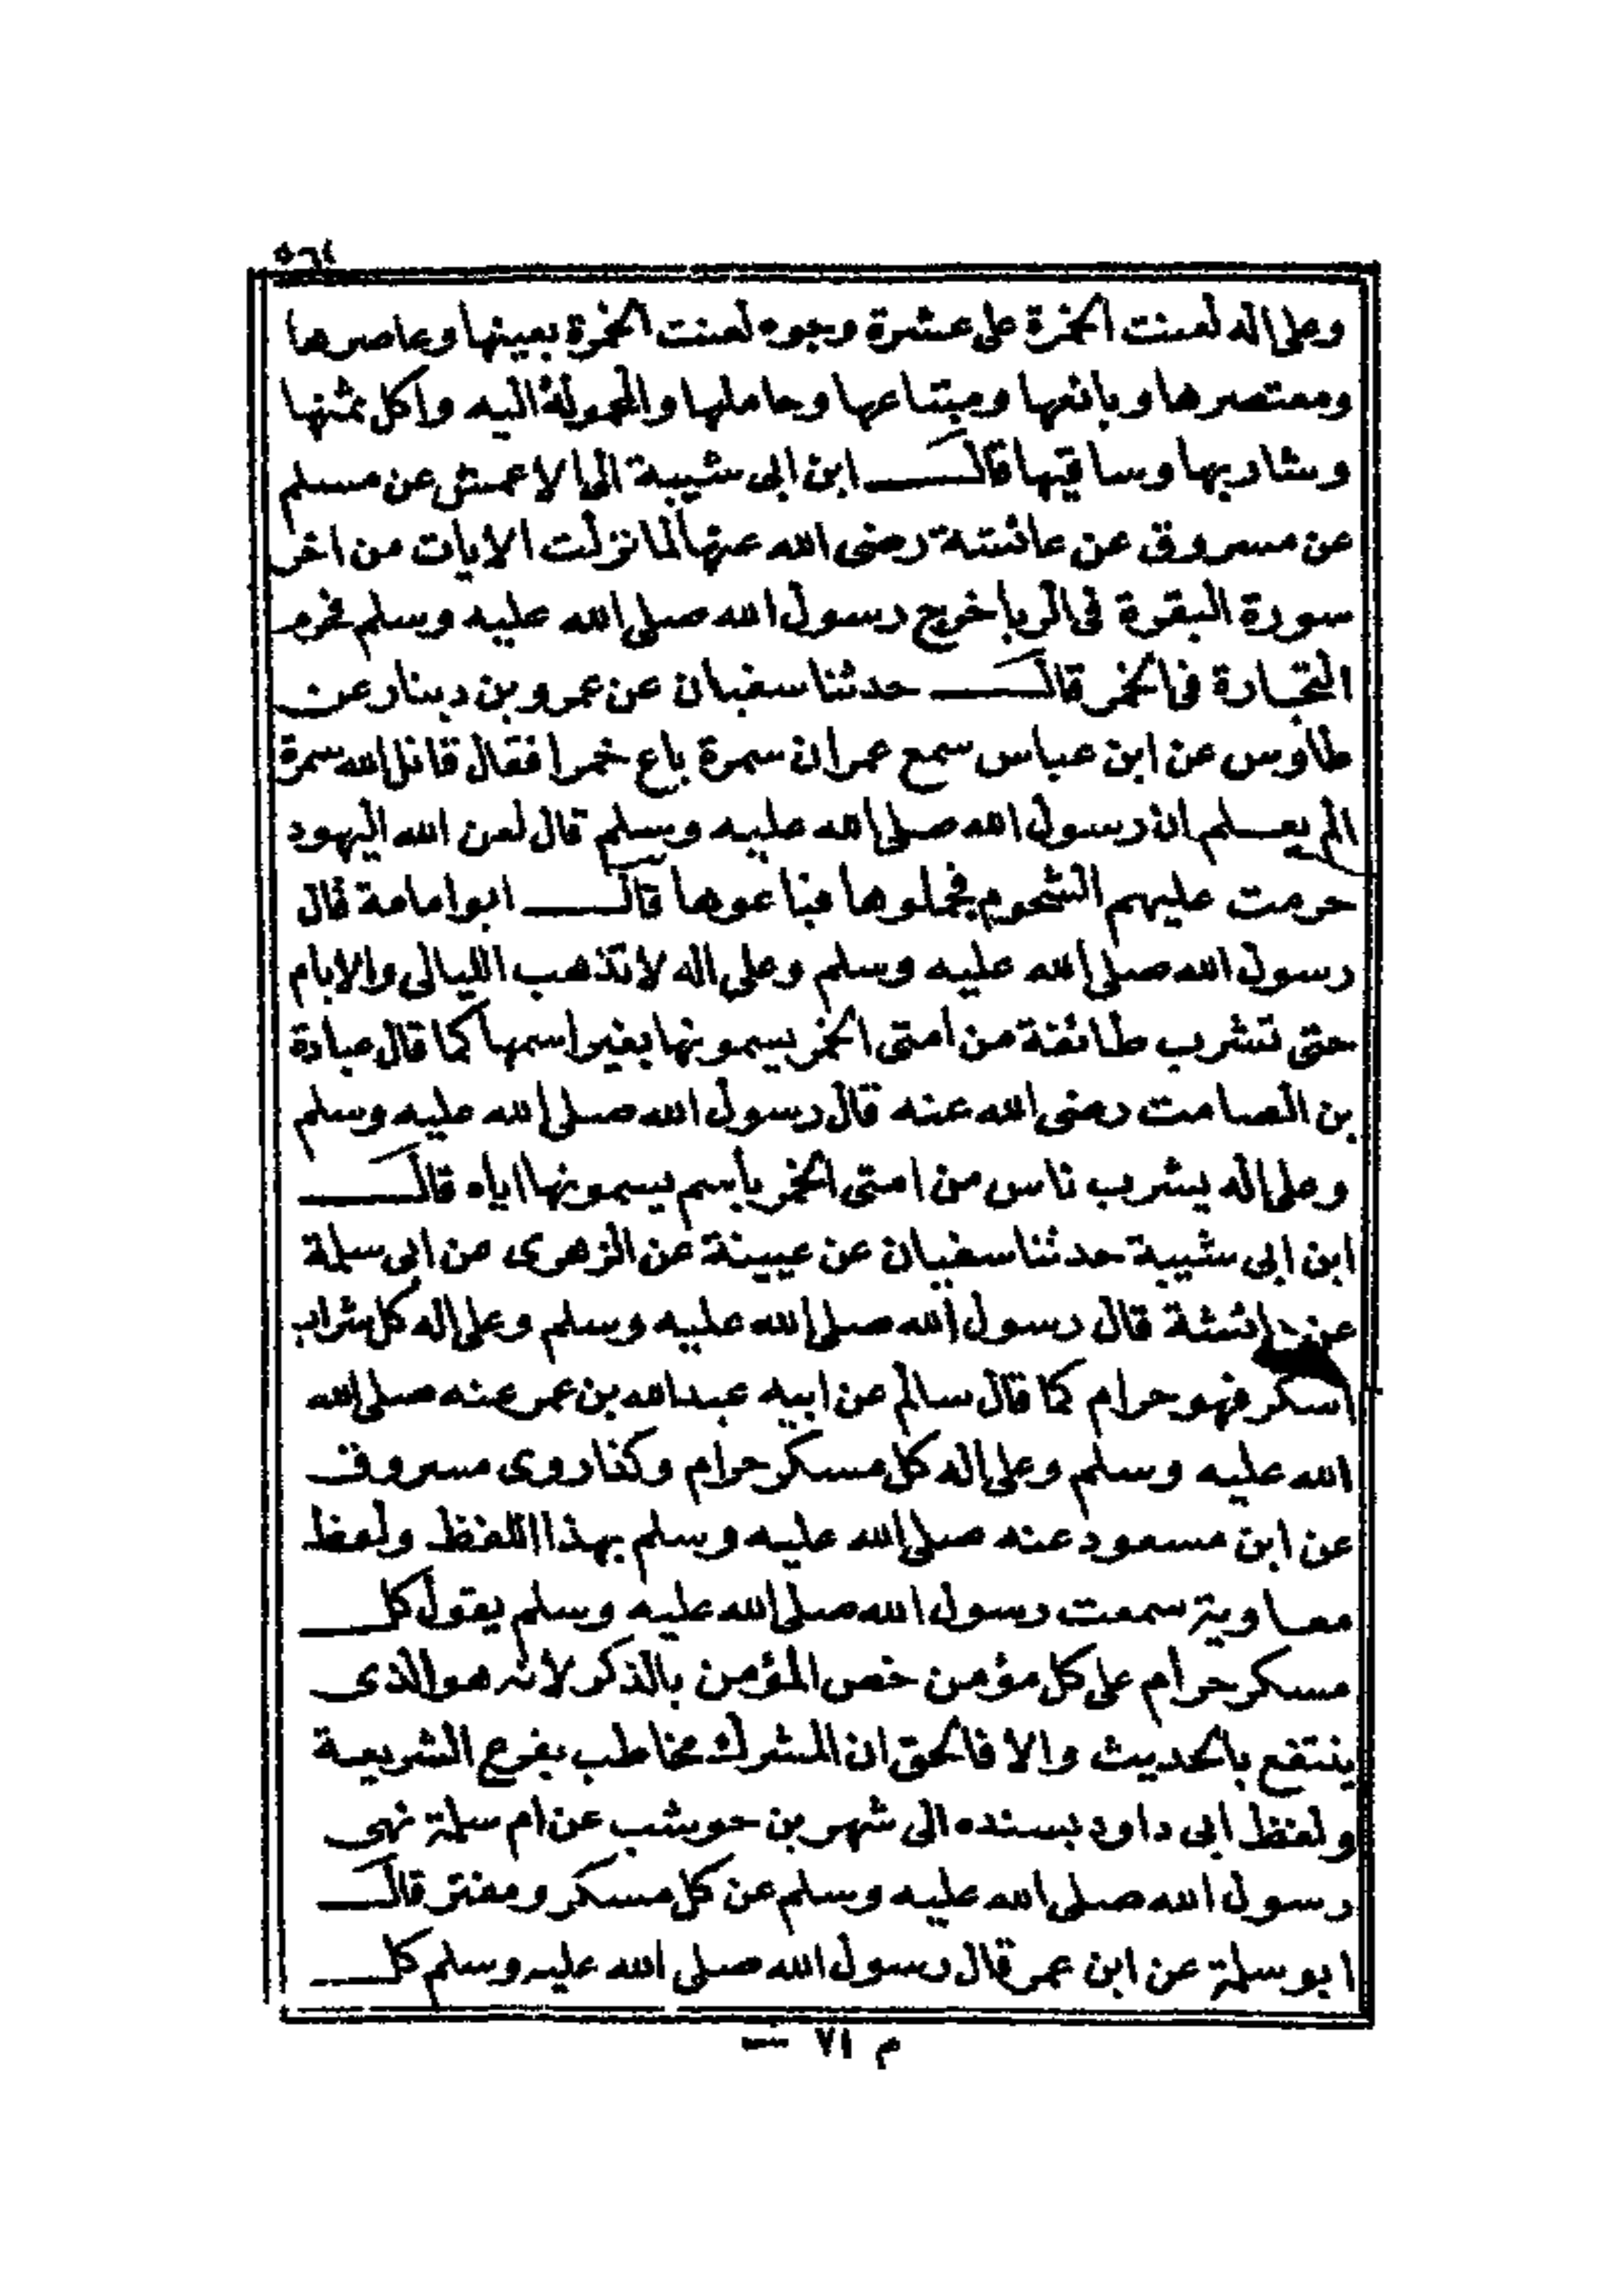 ٥٦١
وعلى اله لعنت الخمرة على عشرة وجوه لعنت الخمرة بعينها وعاصرها
ومعتصرها وبائعها ومبتاعها وحاملها والمحمولة اليه واكل ثمنها
وشاربها وساقيها قال ابن ابى شيبة الى الاعمش عن مسلم
عن مسروق عن عائشة رضى الله عنها لما نزلت الايات من اخر
سورة البقرة فى الربا خرج رسول الله صلى الله عليه وسلم فحرم
التجارة فى الخمر قال حدثنا سفيان عن عمرو بن دينار عن
طاوس عن ابن عباس سمع عمر ان سمرة باع خمرا فقال قاتل الله سمرة
الم يعلم ان رسول الله صلى الله عليه وسلم قال لعن الله اليهود
حرمت عليهم الشحوم فجملوها فباعوها قال ابو امامة قال
رسول الله صلى الله عليه وسلم وعلى اله لا تذهب الليالى والايام
حتى تشرب طائفة من امتى الخمر يسمونها بغير اسمها كما قال عبادة
بن الصامت رضى الله عنه قال رسول الله صلى الله عليه وسلم
وعلى اله يشرب ناس من امتى الخمر بأسم يسمونها اياه قال
ابن ابى شيبة حدثنا سفيان عن عيينة عن الزهرى عن ابى سلمة
عن عائشة قال رسول الله صلى الله عليه وسلم وعلى اله كل شراب
اسكر فهو حرام كما قال سالم عن ابيه عبد الله بن عمر عنه صلى الله
الله عليه وسلم وعلى اله كل مسكر حرام وكذا روى مسروق
عن ابن مسعود عنه صلى الله عليه وسلم بهذا اللفظ ولفظ
معاوية سمعت رسول الله صلى الله عليه وسلم يقول كل
مسكر حرام على كل مؤمن خص المؤمن بالذكر لأنه هو الذى
ينتفع بالحديث والا فالحق ان المشرك مخاطب بفرع الشريعة
ولفظ ابى داود بسنده الى شهر بن حوشب عن ام سلمة نهى
رسول الله صلى الله عليه وسلم عن كل مسكر ومفتر قال
ابو سلمة عن ابن عمر قال رسول الله صلى الله عليه وسلم كل
م ٧١ —